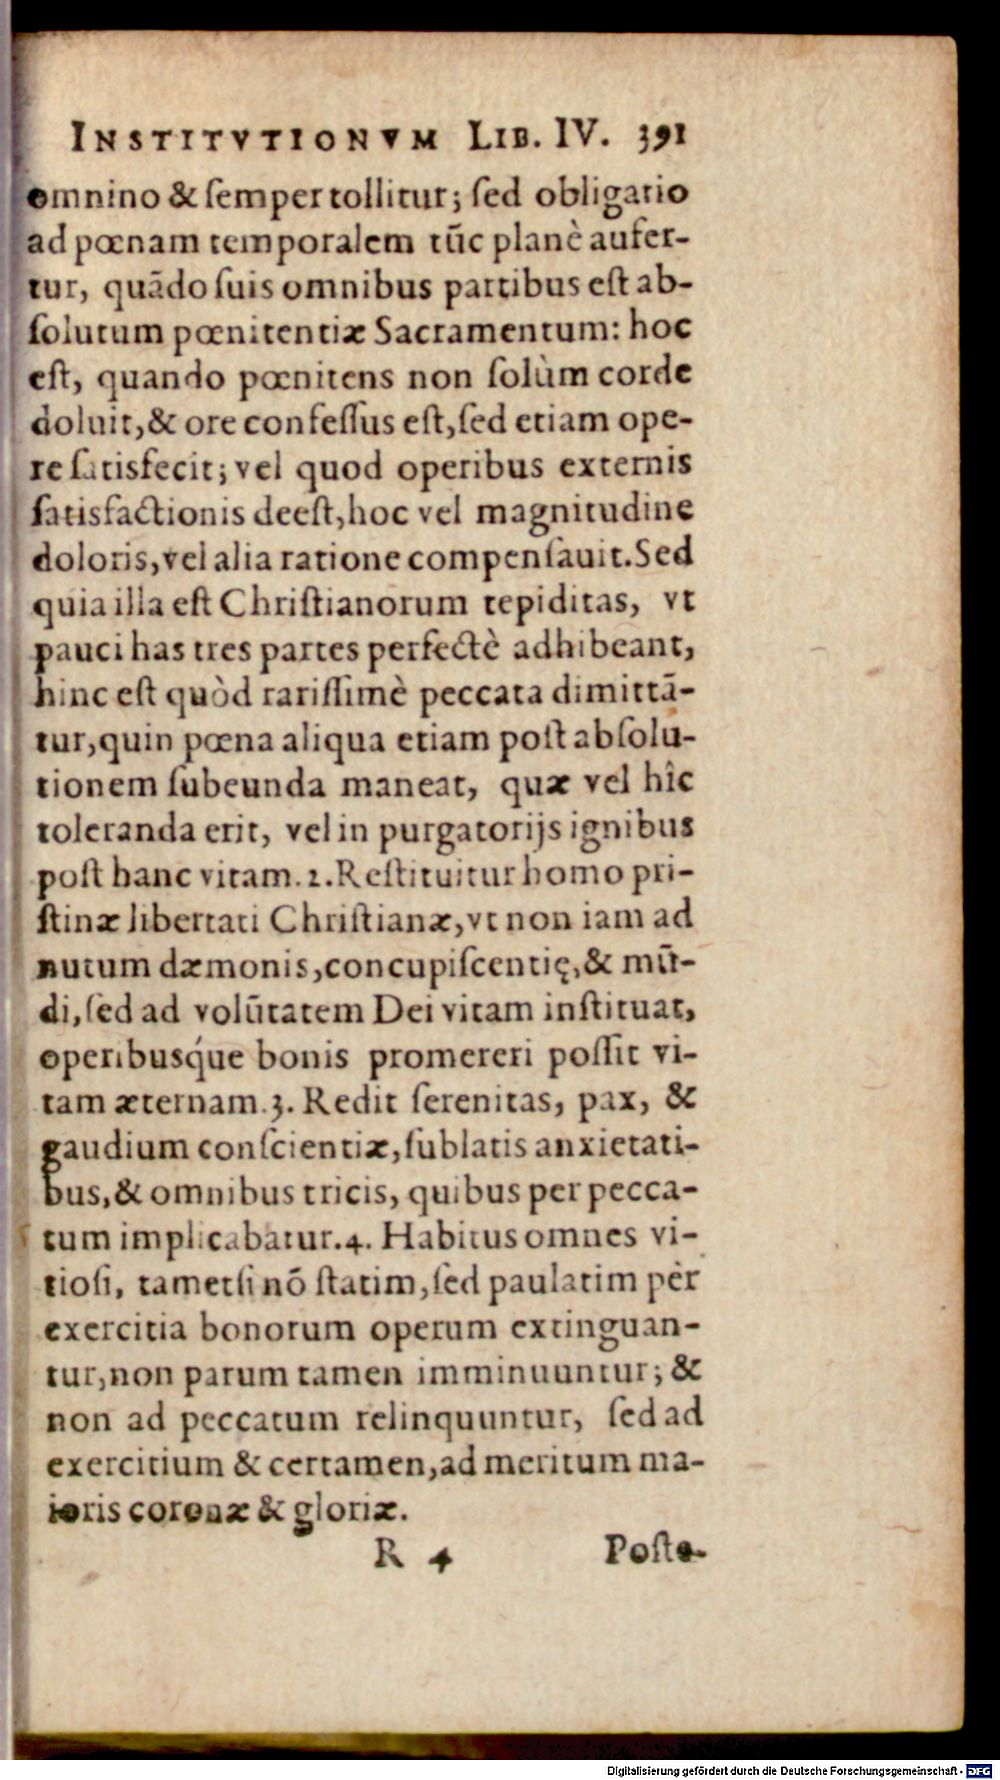 INSTITVTIONVM LIB. IV. 391
omnino & semper tollitur; sed obligatio
ad pœnam temporalem tūc planè aufer-
tur, quādo suis omnibus partibus est ab-
solutum pœnitentiæ Sacramentum: hoc
est, quando pœnitens non solùm corde
doluit, & ore confessus est, sed etiam ope-
re satisfecit; vel quod operibus externis
satisfactionis deest, hoc vel magnitudine
doloris, vel alia ratione compensauit. Sed
quia illa est Christianorum tepiditas, vt
pauci has tres partes perfectè adhibeant,
hinc est quòd rarissimè peccata dimittā-
tur, quin pœna aliqua etiam post absolu-
tionem subeunda maneat, quæ vel hîc
toleranda erit, vel in purgatorijs ignibus
post hanc vitam. 2. Restituitur homo pri-
stinæ libertati Christianæ, vt non iam ad
nutum dæmonis, concupiscentię, & mū-
di, sed ad volūtatem Dei vitam instituat,
operibusq́ue bonis promereri possit vi-
tam æternam. 3. Redit serenitas, pax, &
gaudium conscientiæ, sublatis anxietati-
bus, & omnibus tricis, quibus per pecca-
tum implicabatur. 4. Habitus omnes vi-
tiosi, tametsi nō statim, sed paulatim per
exercitia bonorum operum extinguan-
tur, non parum tamen imminuuntur; &
non ad peccatum relinquuntur, sed ad
exercitium & certamen, ad meritum ma-
ioris coronæ & gloriæ.
R 4 Poste-
Digitalisierung gefördert durch die Deutsche Forschungsgemeinschaft - DFG